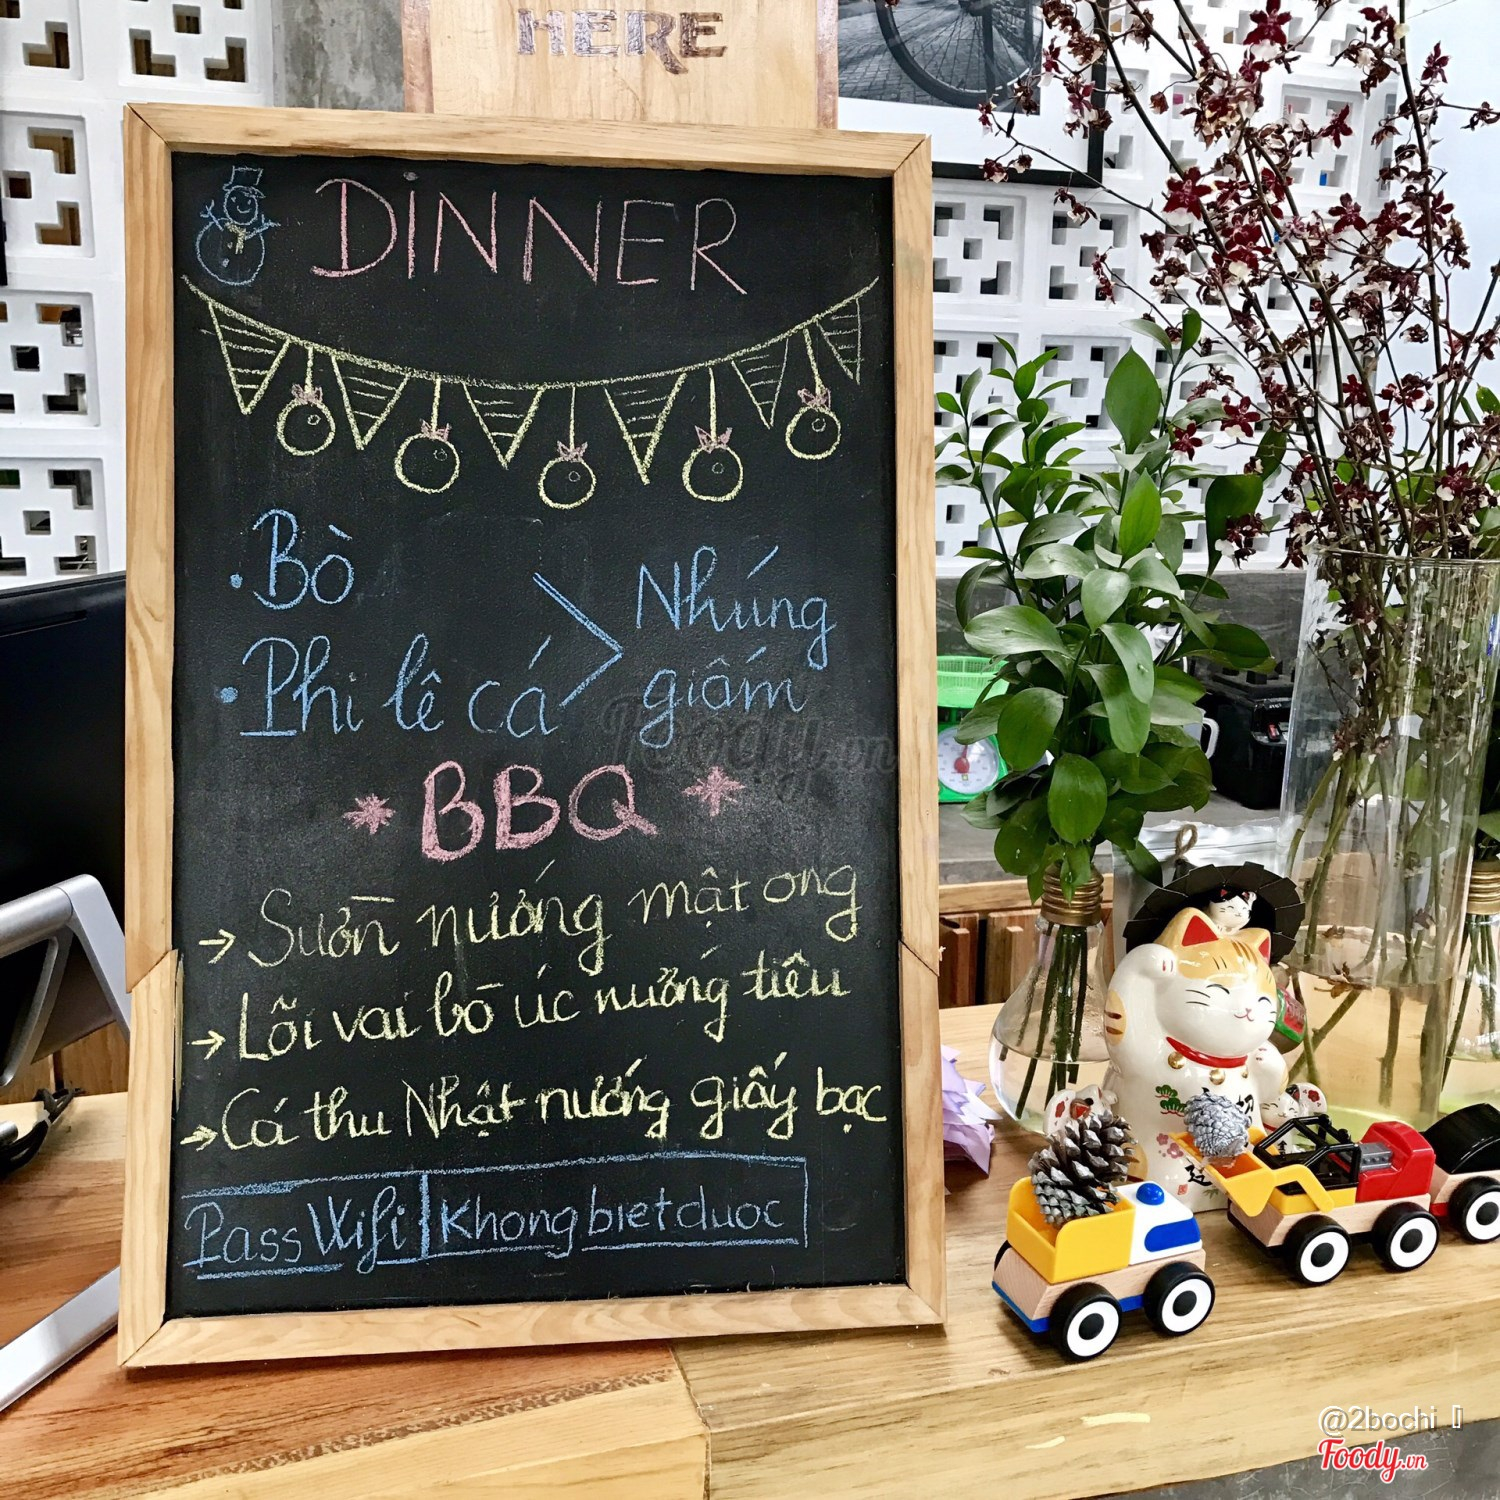 HERE
DINNER
• Bò
• Phi lê cá > Nhúng giấm
* BBQ *
→ Sườn nướng mật ong
→ Lõi vai bò Úc nướng tiêu
→ Cá thu Nhật nướng giấy bạc
Pass Wifi: Khongbietduoc
Foody.vn
@2bochi
Foody.vn